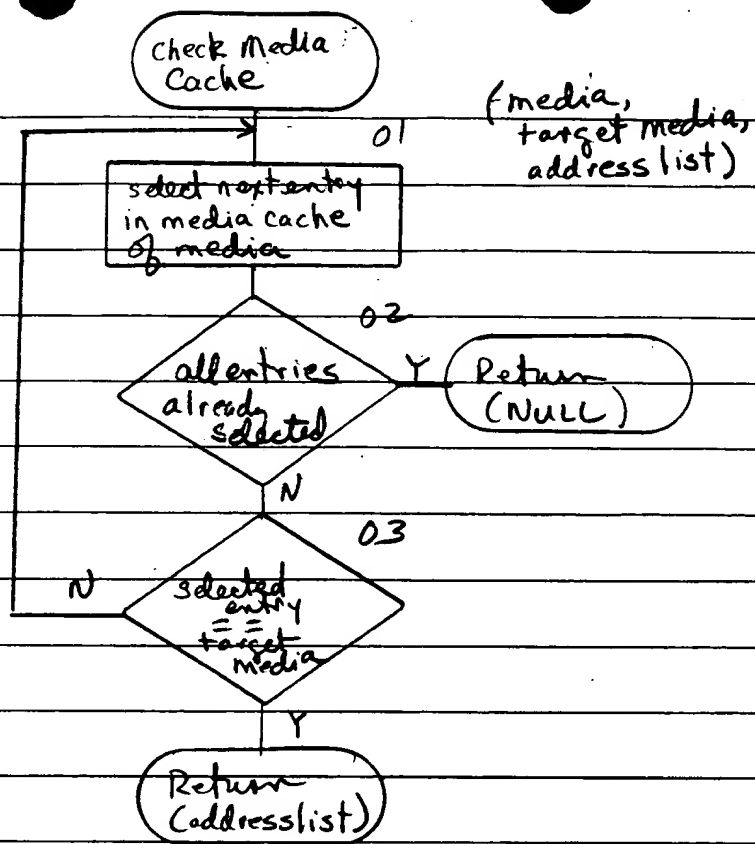 Check Media
Cache
01
(media,
target media,
address list)
select next entry
in media cache
of media
02
all entries
already
selected
Y
Return
(NULL)
N
03
N
selected
entry
==
target
media
Y
Return
(addresslist)